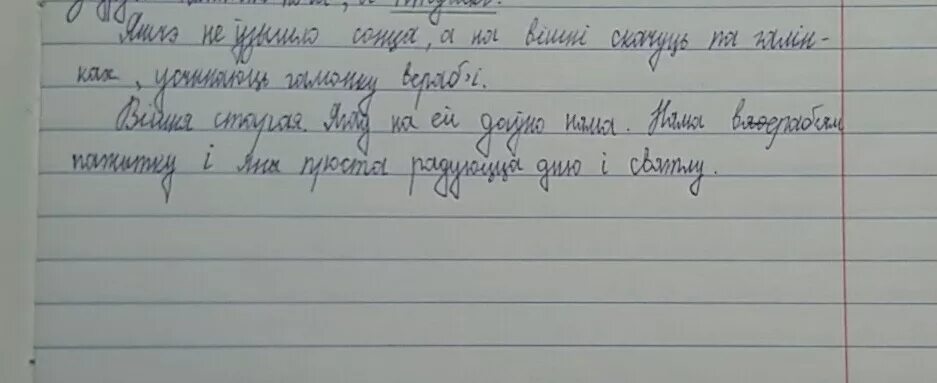 Яшчэ не ўзышло сонца, а на вішні скачуць па галін-
ках, усчынаюць гамонку вераб'і.
Вішня старая. Ягад на ей даўно няма. Няма вераб'ям
пажытку і яны проста радуюцца дню і святлу.